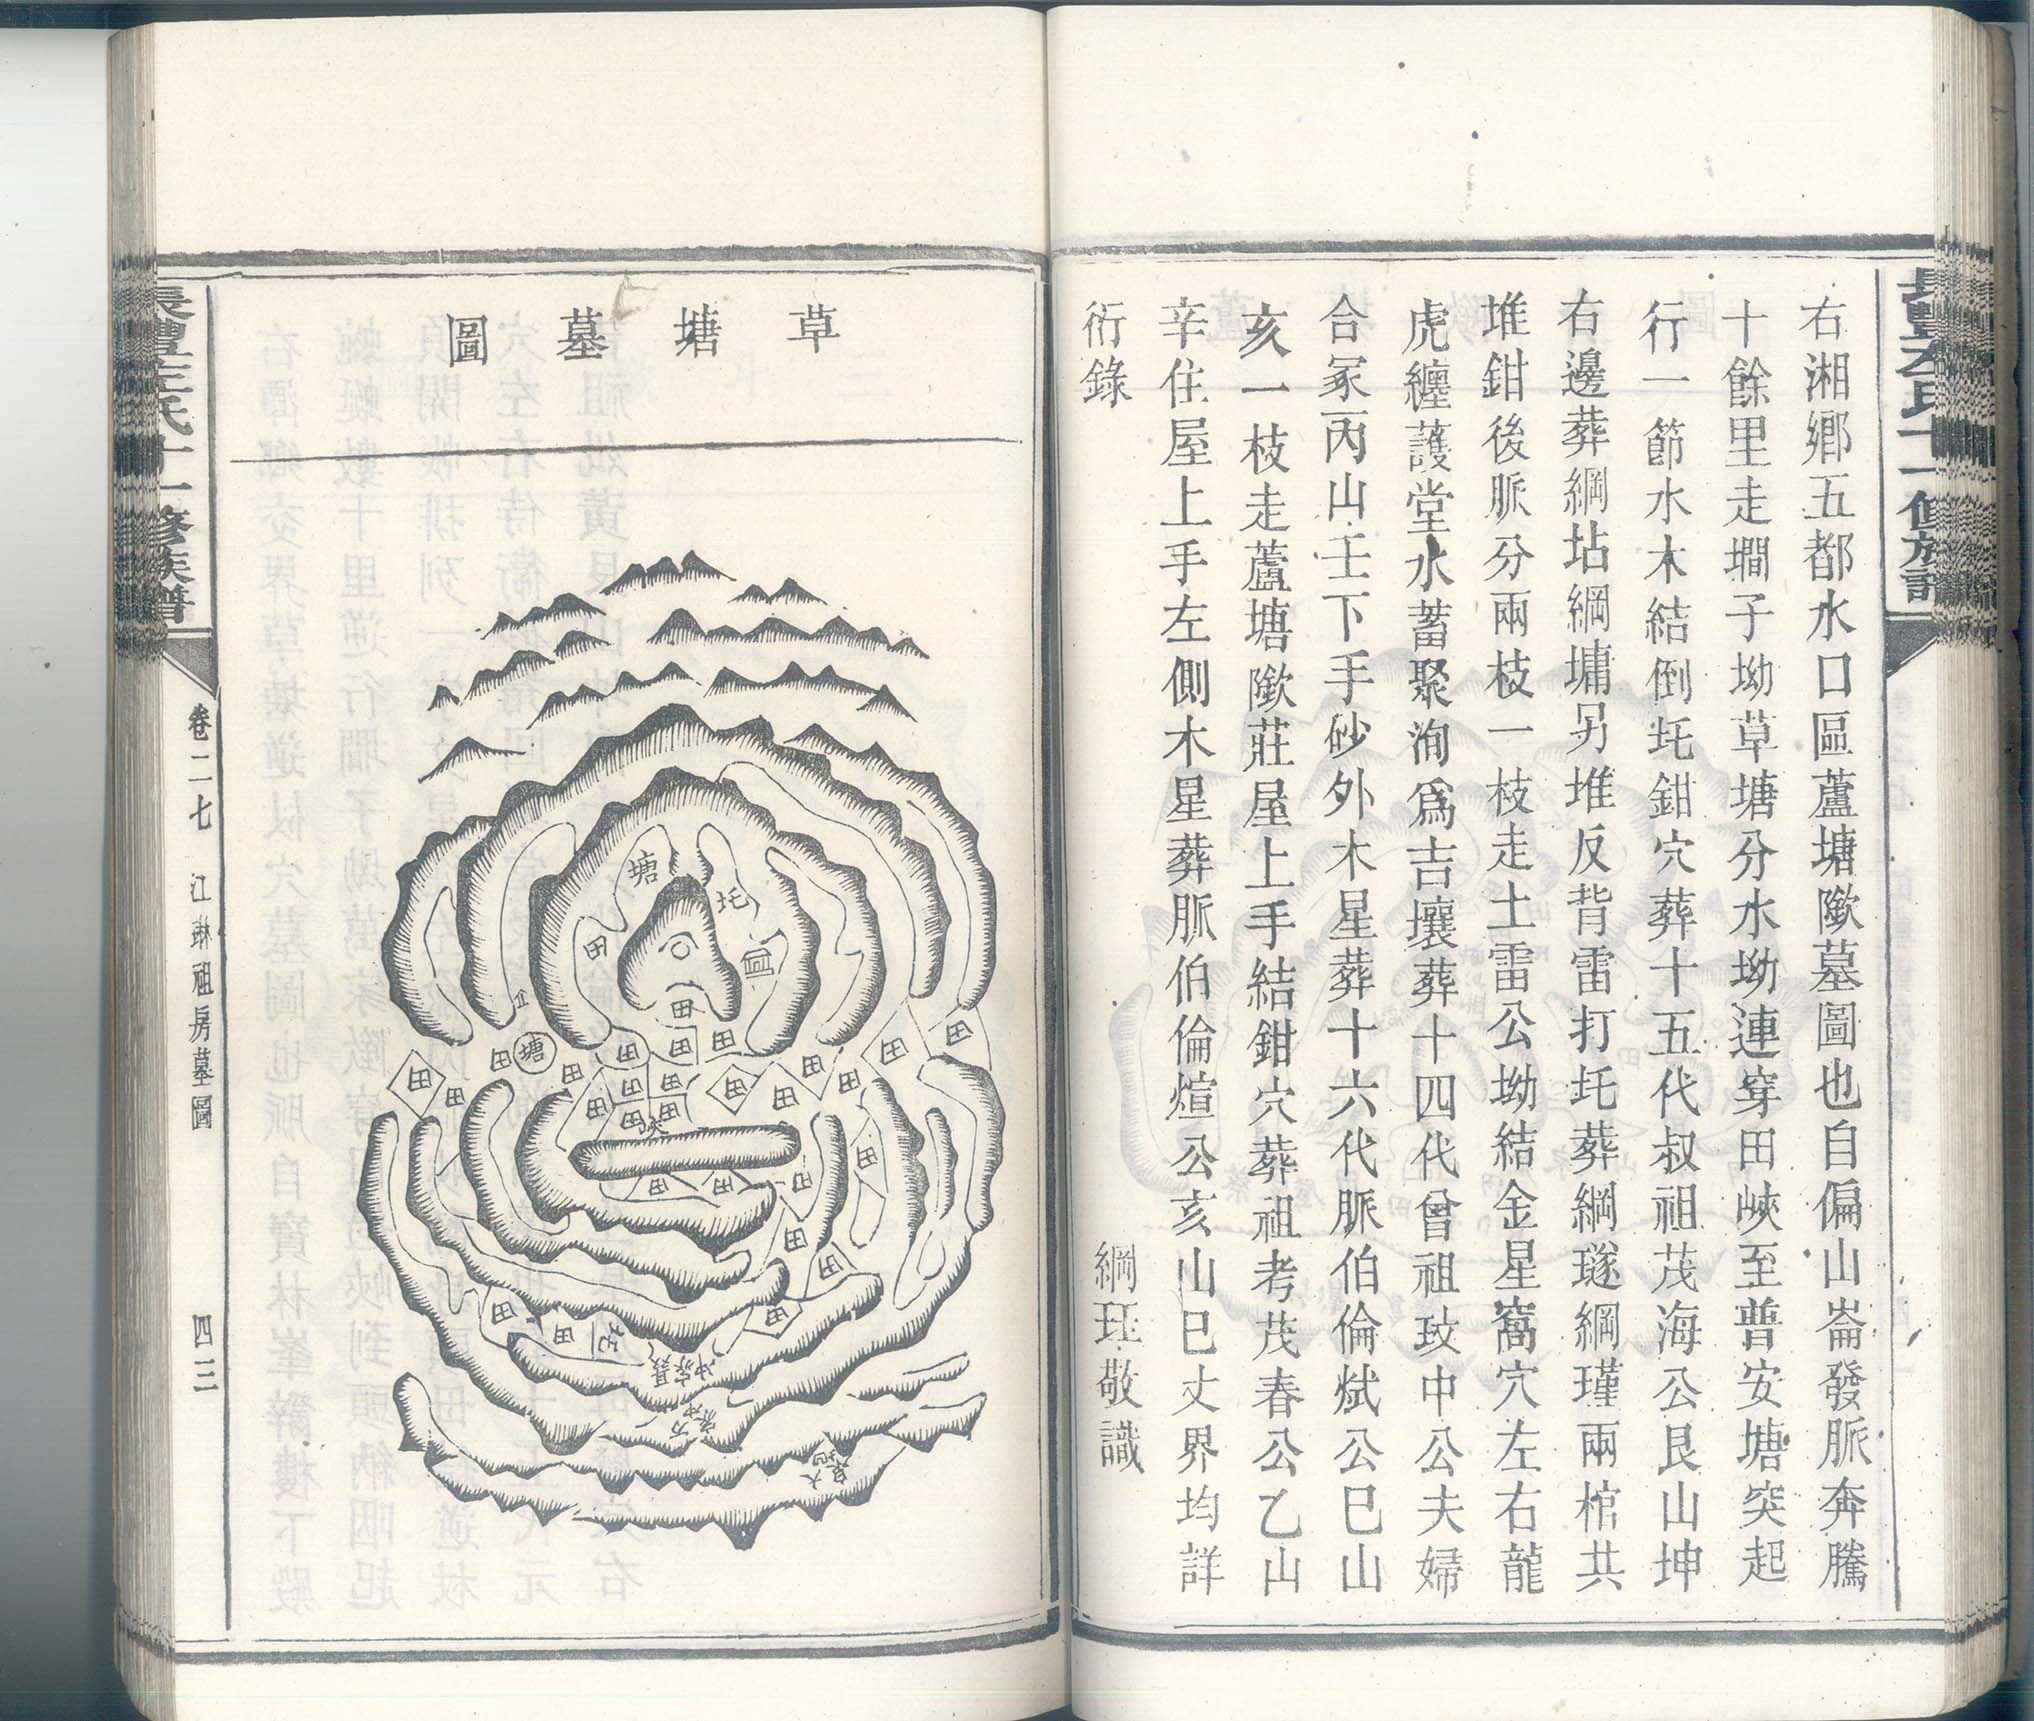 右湘鄉五都水口區蘆塘隞墓圖也自偏山崙發脈奔騰
十餘里走墹子坳草塘分水坳連穿田峽至普安塘突起
行一節水木結倒圫鉗穴葬十五代叔祖茂海公艮山坤
右邊葬綱坫綱墉另堆反背雷打圫葬綱璲綱瑾兩棺共
堆鉗後脈分兩枝一枝走土雷公坳結金星窩穴左右龍
虎纏護堂水蓄聚洵為吉壤葬十四代曾祖玟中公夫婦
合冢丙山壬下手砂外木星葬十六代脈伯倫斌公巳山
亥一枝走蘆塘隞莊屋上手結鉗穴葬祖考茂春公乙山
辛住屋上手左側木星葬脈伯倫煊公亥山巳丈界均詳
衍錄
綱玨敬識
草塘墓圖
塘
圫
田
塘
田
卷二七
江琳祖房墓圖
四三